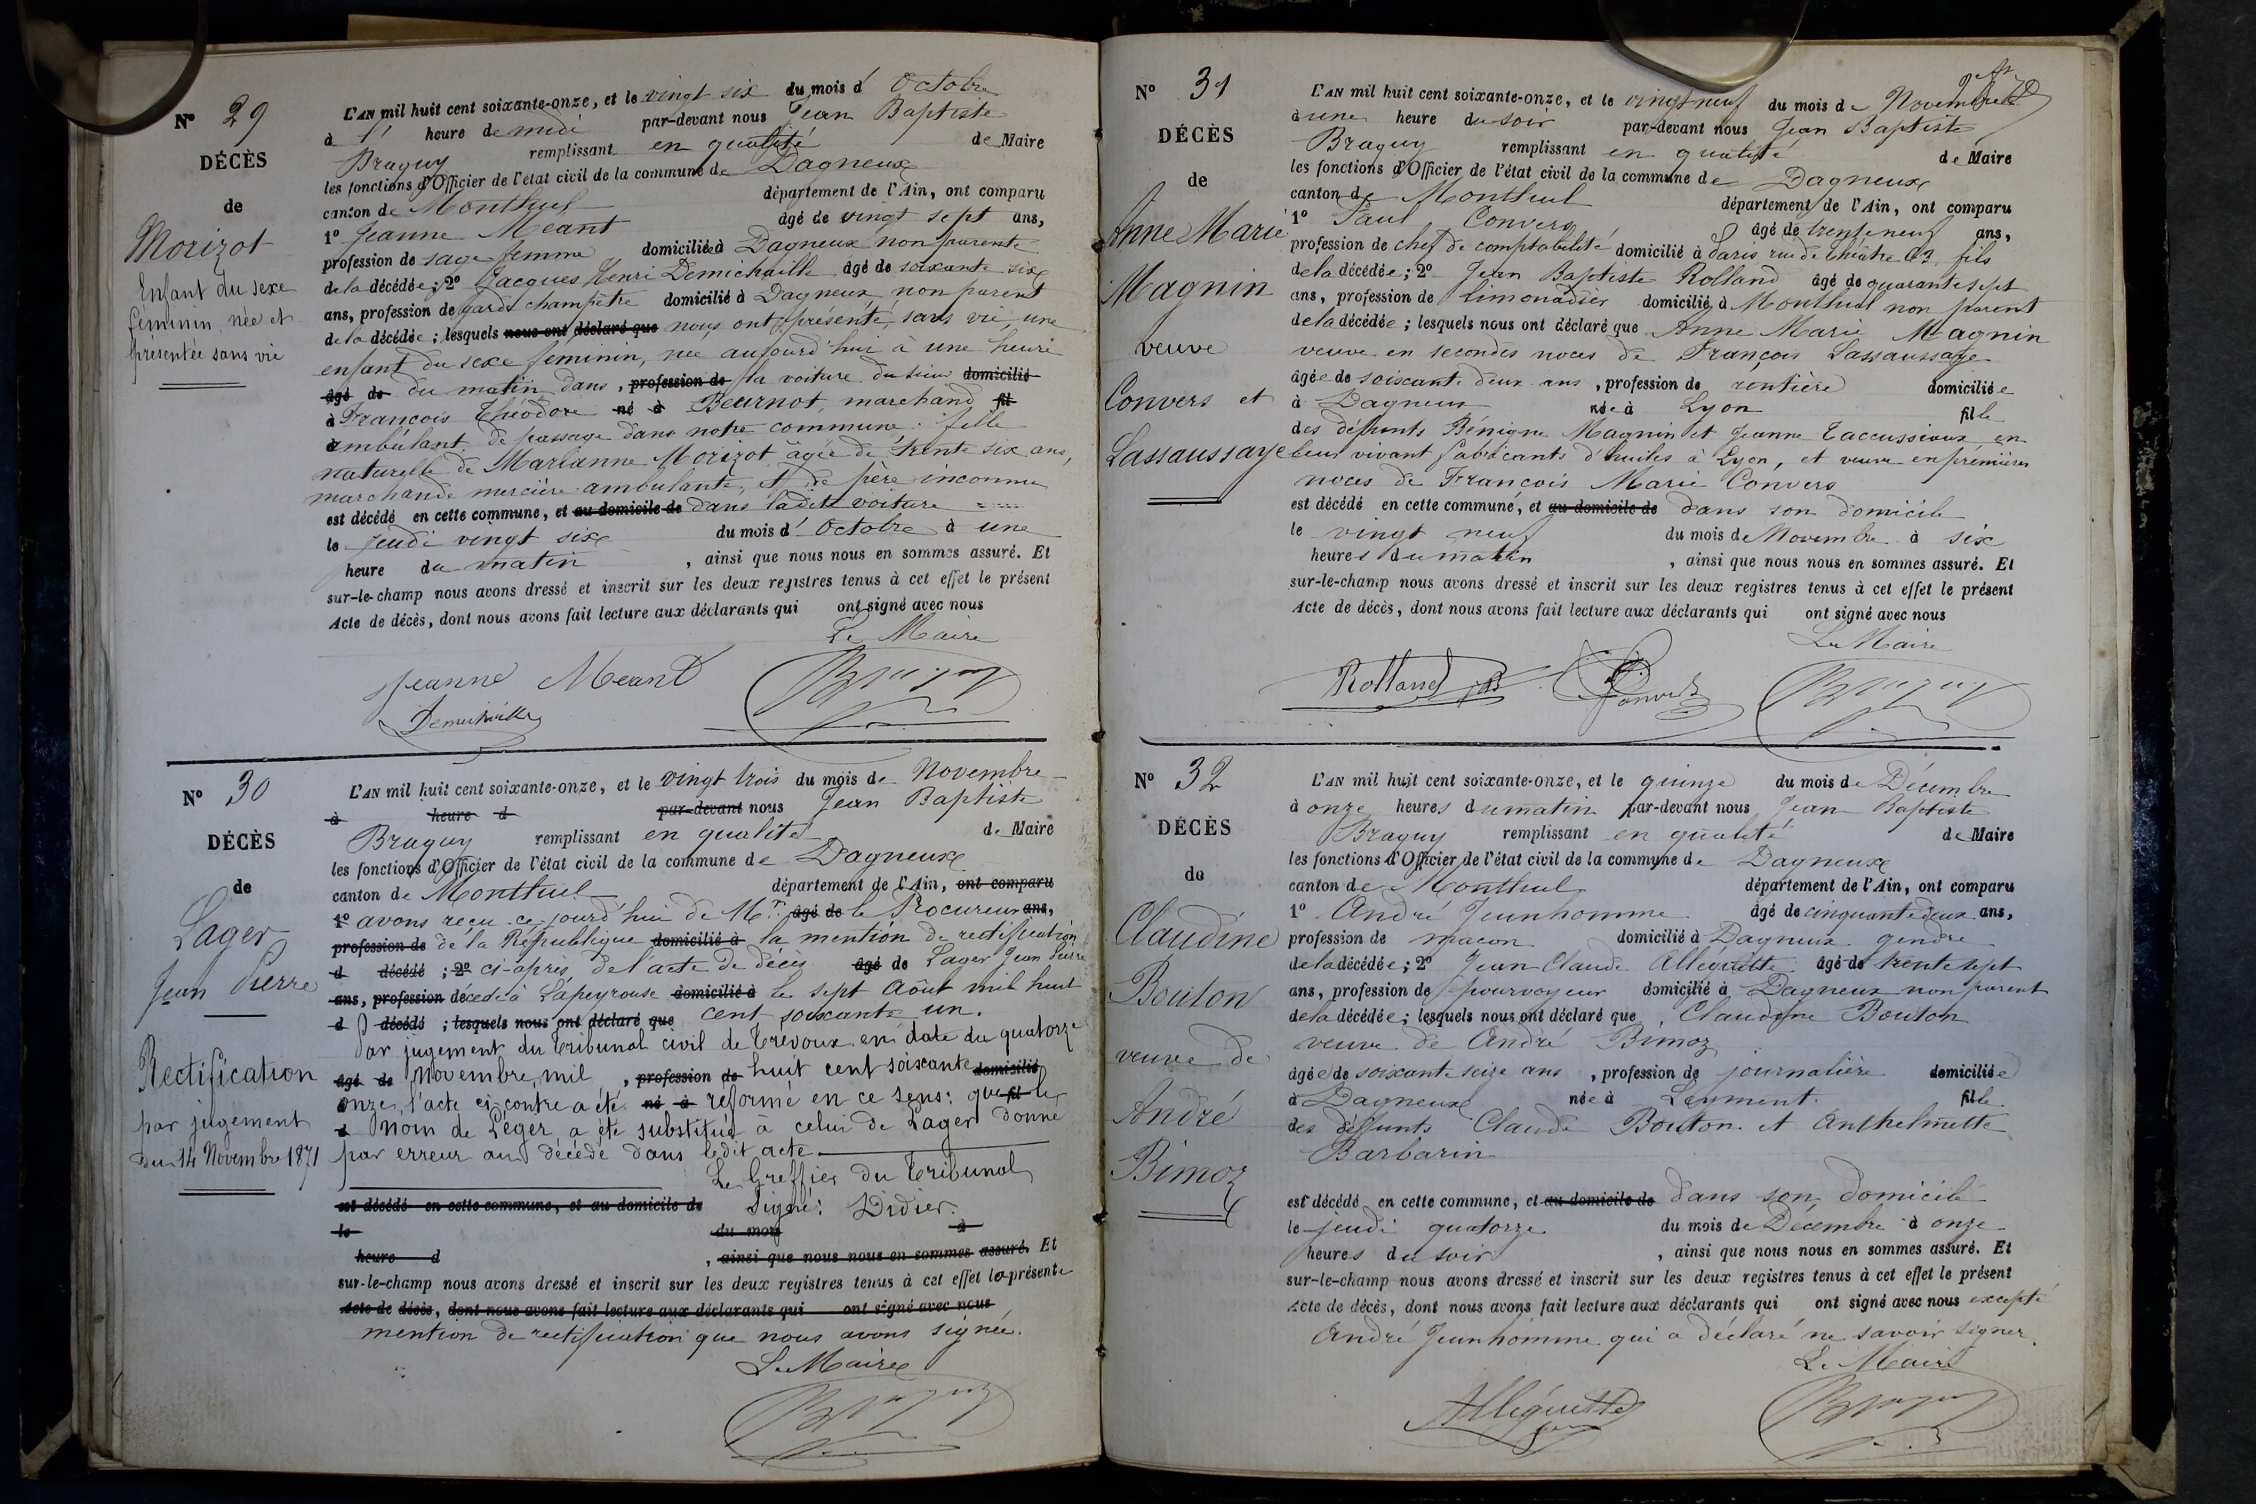 N° 29
DÉCÈS
de
Morizot
Enfant du sexe
féminin, née et
présentée sans vie
L'AN mil huit cent soixante-onze, et le vingt six du mois d' Octobre
à 1 heure de midi par-devant nous Jean Baptiste
Braguy remplissant en qualité de Maire
les fonctions d'Officier de l'état civil de la commune de Dagneux
canton de Montluel département de l'Ain, ont comparu
1° Jeanne Meant âgé de vingt sept ans,
profession de sage femme domiciliée à Dagneux non parente
de la décédée; 2° Jacques Henri Demichaille âgé de soixante six
ans, profession de garde champêtre domicilié à Dagneux non parent
de la décédée; lesquels nous ont déclaré que nous ont présenté, sans vie, une
enfant du sexe féminin, née aujourd'hui à une heure
âgé de du matin dans, profession de la voiture du sieur domicilié
à François Théodore né à Beurnot, marchand fil
ambulant de passage dans notre commune: fille
naturelle de Marianne Morizot âgée de trente six ans,
marchande mercière ambulante, et de père inconnu
est décédé en cette commune, et au domicile de dans ladite voiture
le jeudi vingt six du mois d' Octobre à une
heure du matin, ainsi que nous nous en sommes assuré. Et
sur-le-champ nous avons dressé et inscrit sur les deux registres tenus à cet effet le présent
Acte de décès, dont nous avons fait lecture aux déclarants qui ont signé avec nous
Le Maire
Jeanne Meant Braguy
Demichaille
N° 30
DÉCÈS
de
Lager
Jean Pierre
Rectification
par jugement
du 14 Novembre 1871
L'AN mil huit cent soixante-onze, et le vingt trois du mois de Novembre
à heure d par-devant nous Jean Baptiste
Braguy remplissant en qualité de Maire
les fonctions d'Officier de l'état civil de la commune de Dagneux
canton de Montluel département de l'Ain, ont comparu
1° avons reçu ce jourd'hui de Mr. âgé de le Procureur ans,
profession de de la République domicilié à la mention de rectification
d décédé; 2° ci-après, de l'acte de décès âgé de Lager Jean Pierre
ans, profession décédé à Lapeyrouse domicilié à le sept Août mil huit
d décédé; lesquels nous ont déclaré que cent soixante un.
Par jugement du Tribunal civil de Trévoux en date du quatorze
âgé de Novembre mil, profession de huit cent soixante domicilié
onze, l'acte ci-contre a été né à réformé en ce sens: que fil le
à nom de Léger a été substitué à celui de Lager donné
par erreur au décédé dans ledit acte.
Le Greffier du Tribunal
est décédé en cette commune, et au domicile de Signé: Didier.
le du mois à
heure d, ainsi que nous nous en sommes assuré. Et
sur-le-champ nous avons dressé et inscrit sur les deux registres tenus à cet effet la présente
Acte de décès, dont nous avons fait lecture aux déclarants qui ont signé avec nous
mention de rectification que nous avons signée.
Le Maire
Braguy
N° 31
DÉCÈS
de
Anne Marie
Magnin
veuve
Convers et
Lassaussaye
L'AN mil huit cent soixante-onze, et le vingt neuf du mois de Novembre
à une heure du soir par-devant nous Jean Baptiste
Braguy remplissant en qualité de Maire
les fonctions d'Officier de l'état civil de la commune de Dagneux
canton de Montluel département de l'Ain, ont comparu
1° Paul Convers âgé de trente neuf ans,
profession de chef de comptabilité domicilié à Paris rue du Théâtre 93, fils
de la décédée; 2° Jean Baptiste Rolland âgé de quarante sept
ans, profession de limonadier domicilié à Montluel non parent
de la décédée; lesquels nous ont déclaré que Anne Marie Magnin
veuve en secondes noces de François Lassaussaye
âgée de soixante deux ans, profession de rentière domiciliée
à Dagneux née à Lyon fille
des défunts Bénigne Magnin et Jeanne Taccussioux en
leur vivant fabricants d'huiles à Lyon, et veuve en premières
noces de François Marie Convers
est décédé en cette commune, et au domicile de dans son domicile
le vingt neuf du mois de Novembre à six
heures du matin, ainsi que nous nous en sommes assuré. Et
sur-le-champ nous avons dressé et inscrit sur les deux registres tenus à cet effet le présent
Acte de décès, dont nous avons fait lecture aux déclarants qui ont signé avec nous
Le Maire
Rolland JB P. Convers Braguy
N° 32
DÉCÈS
de
Claudine
Bouton
veuve de
André
Bimoz
L'AN mil huit cent soixante-onze, et le quinze du mois de Décembre
à onze heures du matin par-devant nous Jean Baptiste
Braguy remplissant en qualité de Maire
les fonctions d'Officier de l'état civil de la commune de Dagneux
canton de Montluel département de l'Ain, ont comparu
1° André Jeunhomme âgé de cinquante deux ans,
profession de maçon domicilié à Dagneux gendre
de la décédée; 2° Jean Claude Alléguette âgé de trente sept
ans, profession de pourvoyeur domicilié à Dagneux non parent
de la décédée; lesquels nous ont déclaré que Claudine Bouton
veuve de André Bimoz
âgée de soixante seize ans, profession de journalière domiciliée
à Dagneux née à Leyment fille
des défunts Claude Bouton et Anthelmette
Barbarin
est décédé en cette commune, et au domicile de dans son domicile
le jeudi quatorze du mois de Décembre à onze
heures du soir, ainsi que nous nous en sommes assuré. Et
sur-le-champ nous avons dressé et inscrit sur les deux registres tenus à cet effet le présent
Acte de décès, dont nous avons fait lecture aux déclarants qui ont signé avec nous excepté
André Jeunhomme qui a déclaré ne savoir signer.
Le Maire
Alléguette Braguy